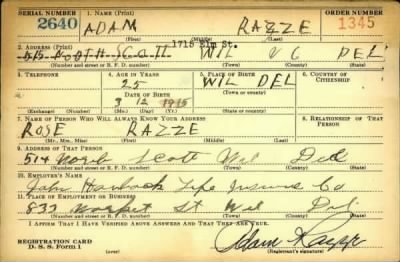 SERIAL NUMBER 1. NAME (Print) ORDER NUMBER
2640 ADAM RAZZE 1345
(First) (Middle) (Last)
1715 Elm St.
2. ADDRESS (Print)
515 NORTH SCOTT WIL N C DEL
(Number and street or R. F. D. number) (Town) (County) (State)
3. TELEPHONE 4. AGE IN YEARS 5. PLACE OF BIRTH 6. COUNTRY OF CITIZENSHIP
25 WIL DEL
DATE OF BIRTH (Town or county)
3 12 1915
(Exchange) (Number) (Mo.) (Day) (Yr.) (State or country)
7. NAME OF PERSON WHO WILL ALWAYS KNOW YOUR ADDRESS 8. RELATIONSHIP OF THAT PERSON
ROSE RAZZE
(Mr., Mrs., Miss) (First) (Middle) (Last)
9. ADDRESS OF THAT PERSON
514 North Scott Wil Del
(Number and street or R. F. D. number) (Town) (County) (State)
10. EMPLOYER'S NAME
John Hancock Life Co
11. PLACE OF EMPLOYMENT OR BUSINESS
Market St Wil Del
(Number and street or R. F. D. number) (Town) (County) (State)
I AFFIRM THAT I HAVE VERIFIED ABOVE ANSWERS AND THAT THEY ARE TRUE.
REGISTRATION CARD
D. S. S. Form 1 Adam Razze
(Registrant's signature)